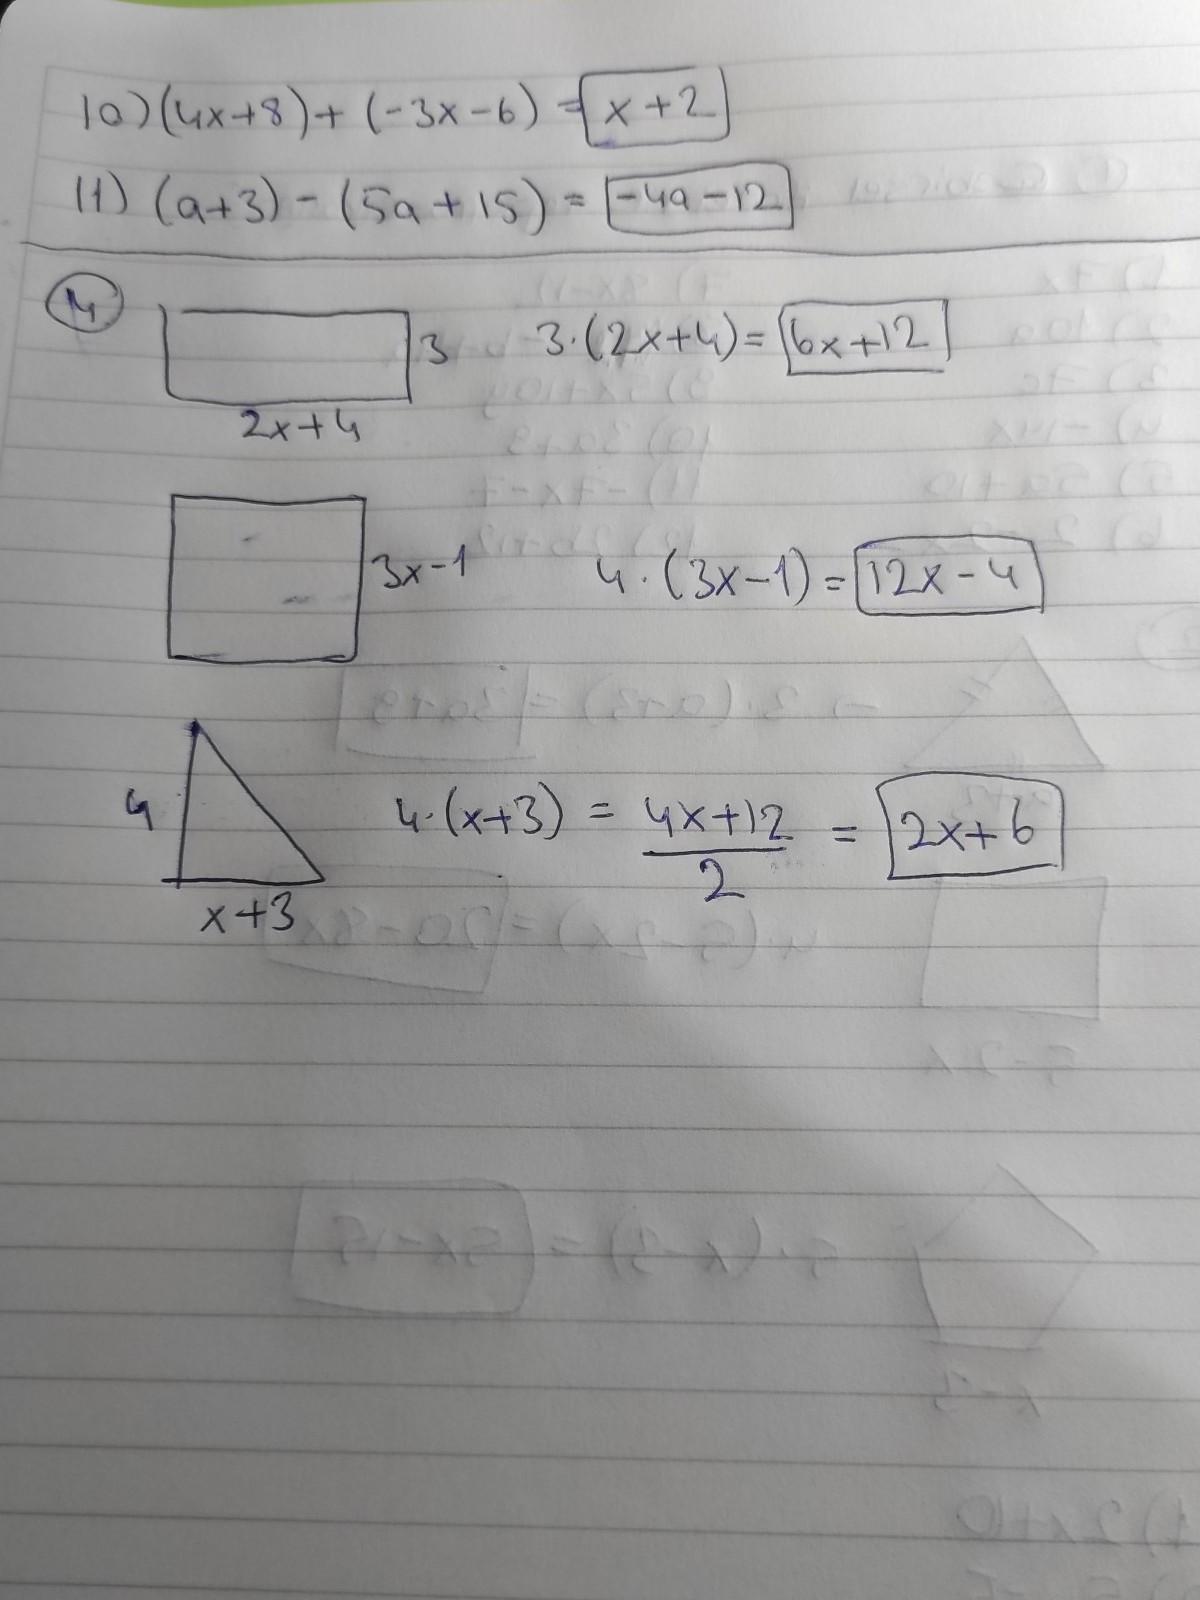 10) (4x+8)+(-3x-6) = x+2
11) (a+3) - (5a+15) = -4a-12
4
3 3·(2x+4) = 6x+12
2x+4
3x-1 4·(3x-1) = 12x-4
4 4·(x+3) = 4x+12/2 = 2x+6
x+3